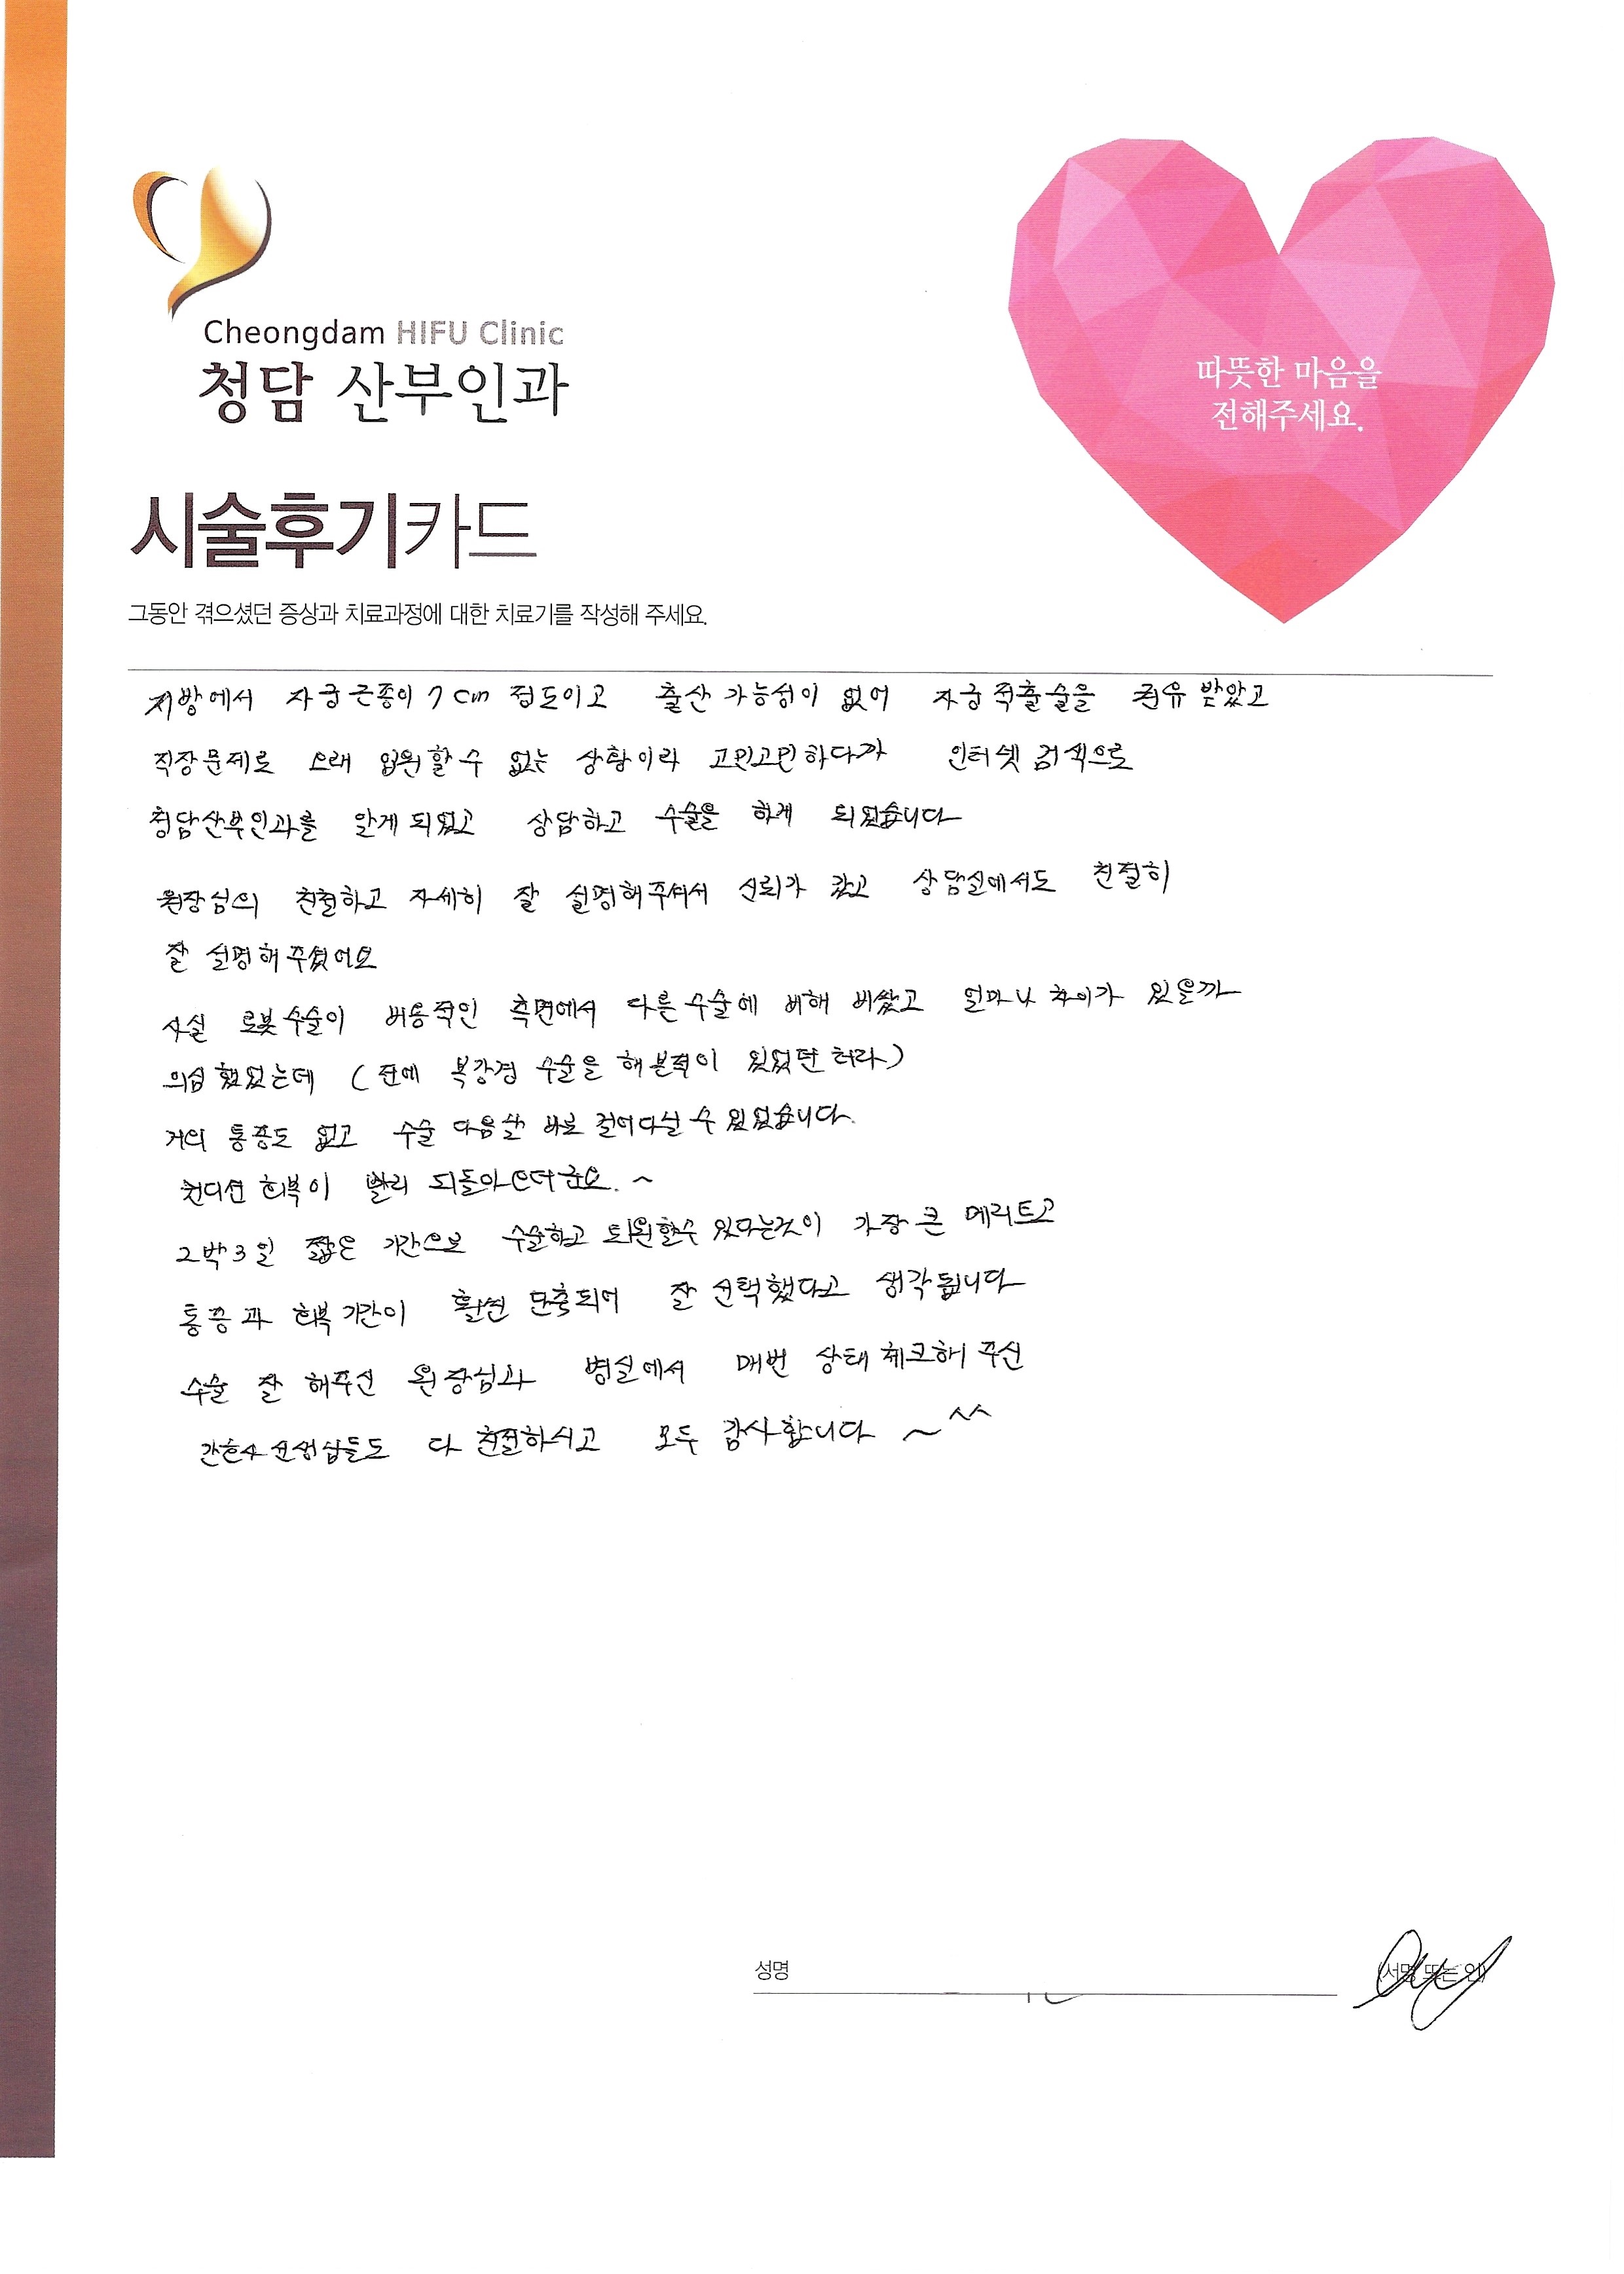 Cheongdam HIFU Clinic
청담 산부인과
따뜻한 마음을
전해주세요.
시술후기카드
그동안 겪으셨던 증상과 치료과정에 대한 치료기를 작성해 주세요.
지방에서 자궁근종이 7cm 정도이고 출산 가능성이 없어 자궁적출술을 권유 받았고
직장문제로 오래 입원할 수 없는 상황이라 고민고민하다가 인터넷 검색으로
청담산부인과를 알게 되었고 상담하고 수술을 하게 되었습니다
원장님의 친절하고 자세히 잘 설명해주셔서 신뢰가 갔고 상담실에서도 친절히
잘 설명해주셨어요
사실 로봇수술이 비용적인 측면에서 다른수술에 비해 비쌌고 얼마나 차이가 있을까
의심했었는데 (전에 복강경 수술을 해본적이 있었던 터라)
거의 통증도 없고 수술 다음날 바로 걸어다닐 수 있었습니다.
컨디션 회복이 빨리 되돌아오더군요.~
2박3일 짧은 기간으로 수술하고 퇴원할수 있다는것이 가장 큰 메리트고
통증과 회복기간이 훨씬 단축되어 잘 선택했다고 생각됩니다
수술 잘 해주신 원장님과 병실에서 매번 상태 체크해 주신
간호사 선생님들도 다 친절하시고 모두 감사합니다 ~^^
성명
(서명 또는 인)